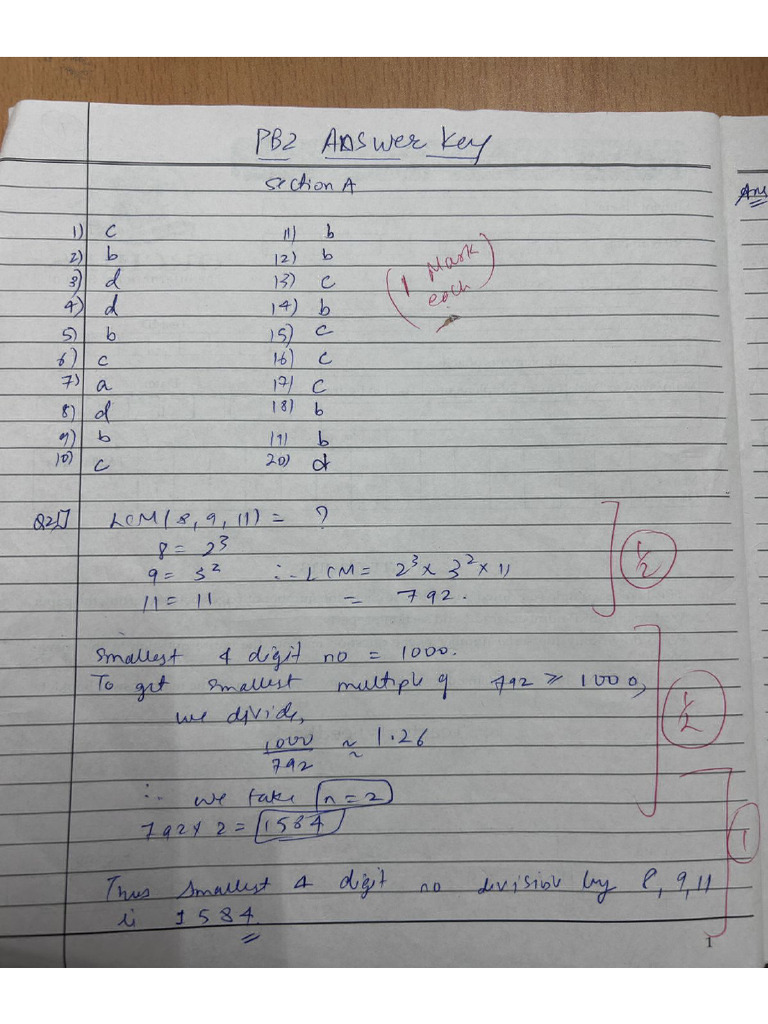 PB2 Answer Key
Section A
1) c 11) b
2) b 12) b
3) d 13) c
4) d 14) b
5) b 15) c
6) c 16) c
7) a 17) c
8) d 18) b
9) b 19) b
10) c 20) d
(1 Mark each)
Q21] LCM(8, 9, 11) = ?
8 = 2³
9 = 3² ∴ LCM = 2³ x 3² x 11
11 = 11 = 792.
1/2
Smallest 4 digit no = 1000.
To get smallest multiple of 792 ≥ 1000,
we divide,
1000/792 ≈ 1.26
1/2
∴ we take n=2
792 x 2 = 1584
1
Thus smallest 4 digit no divisible by 8, 9, 11
is 1584
1
Ans